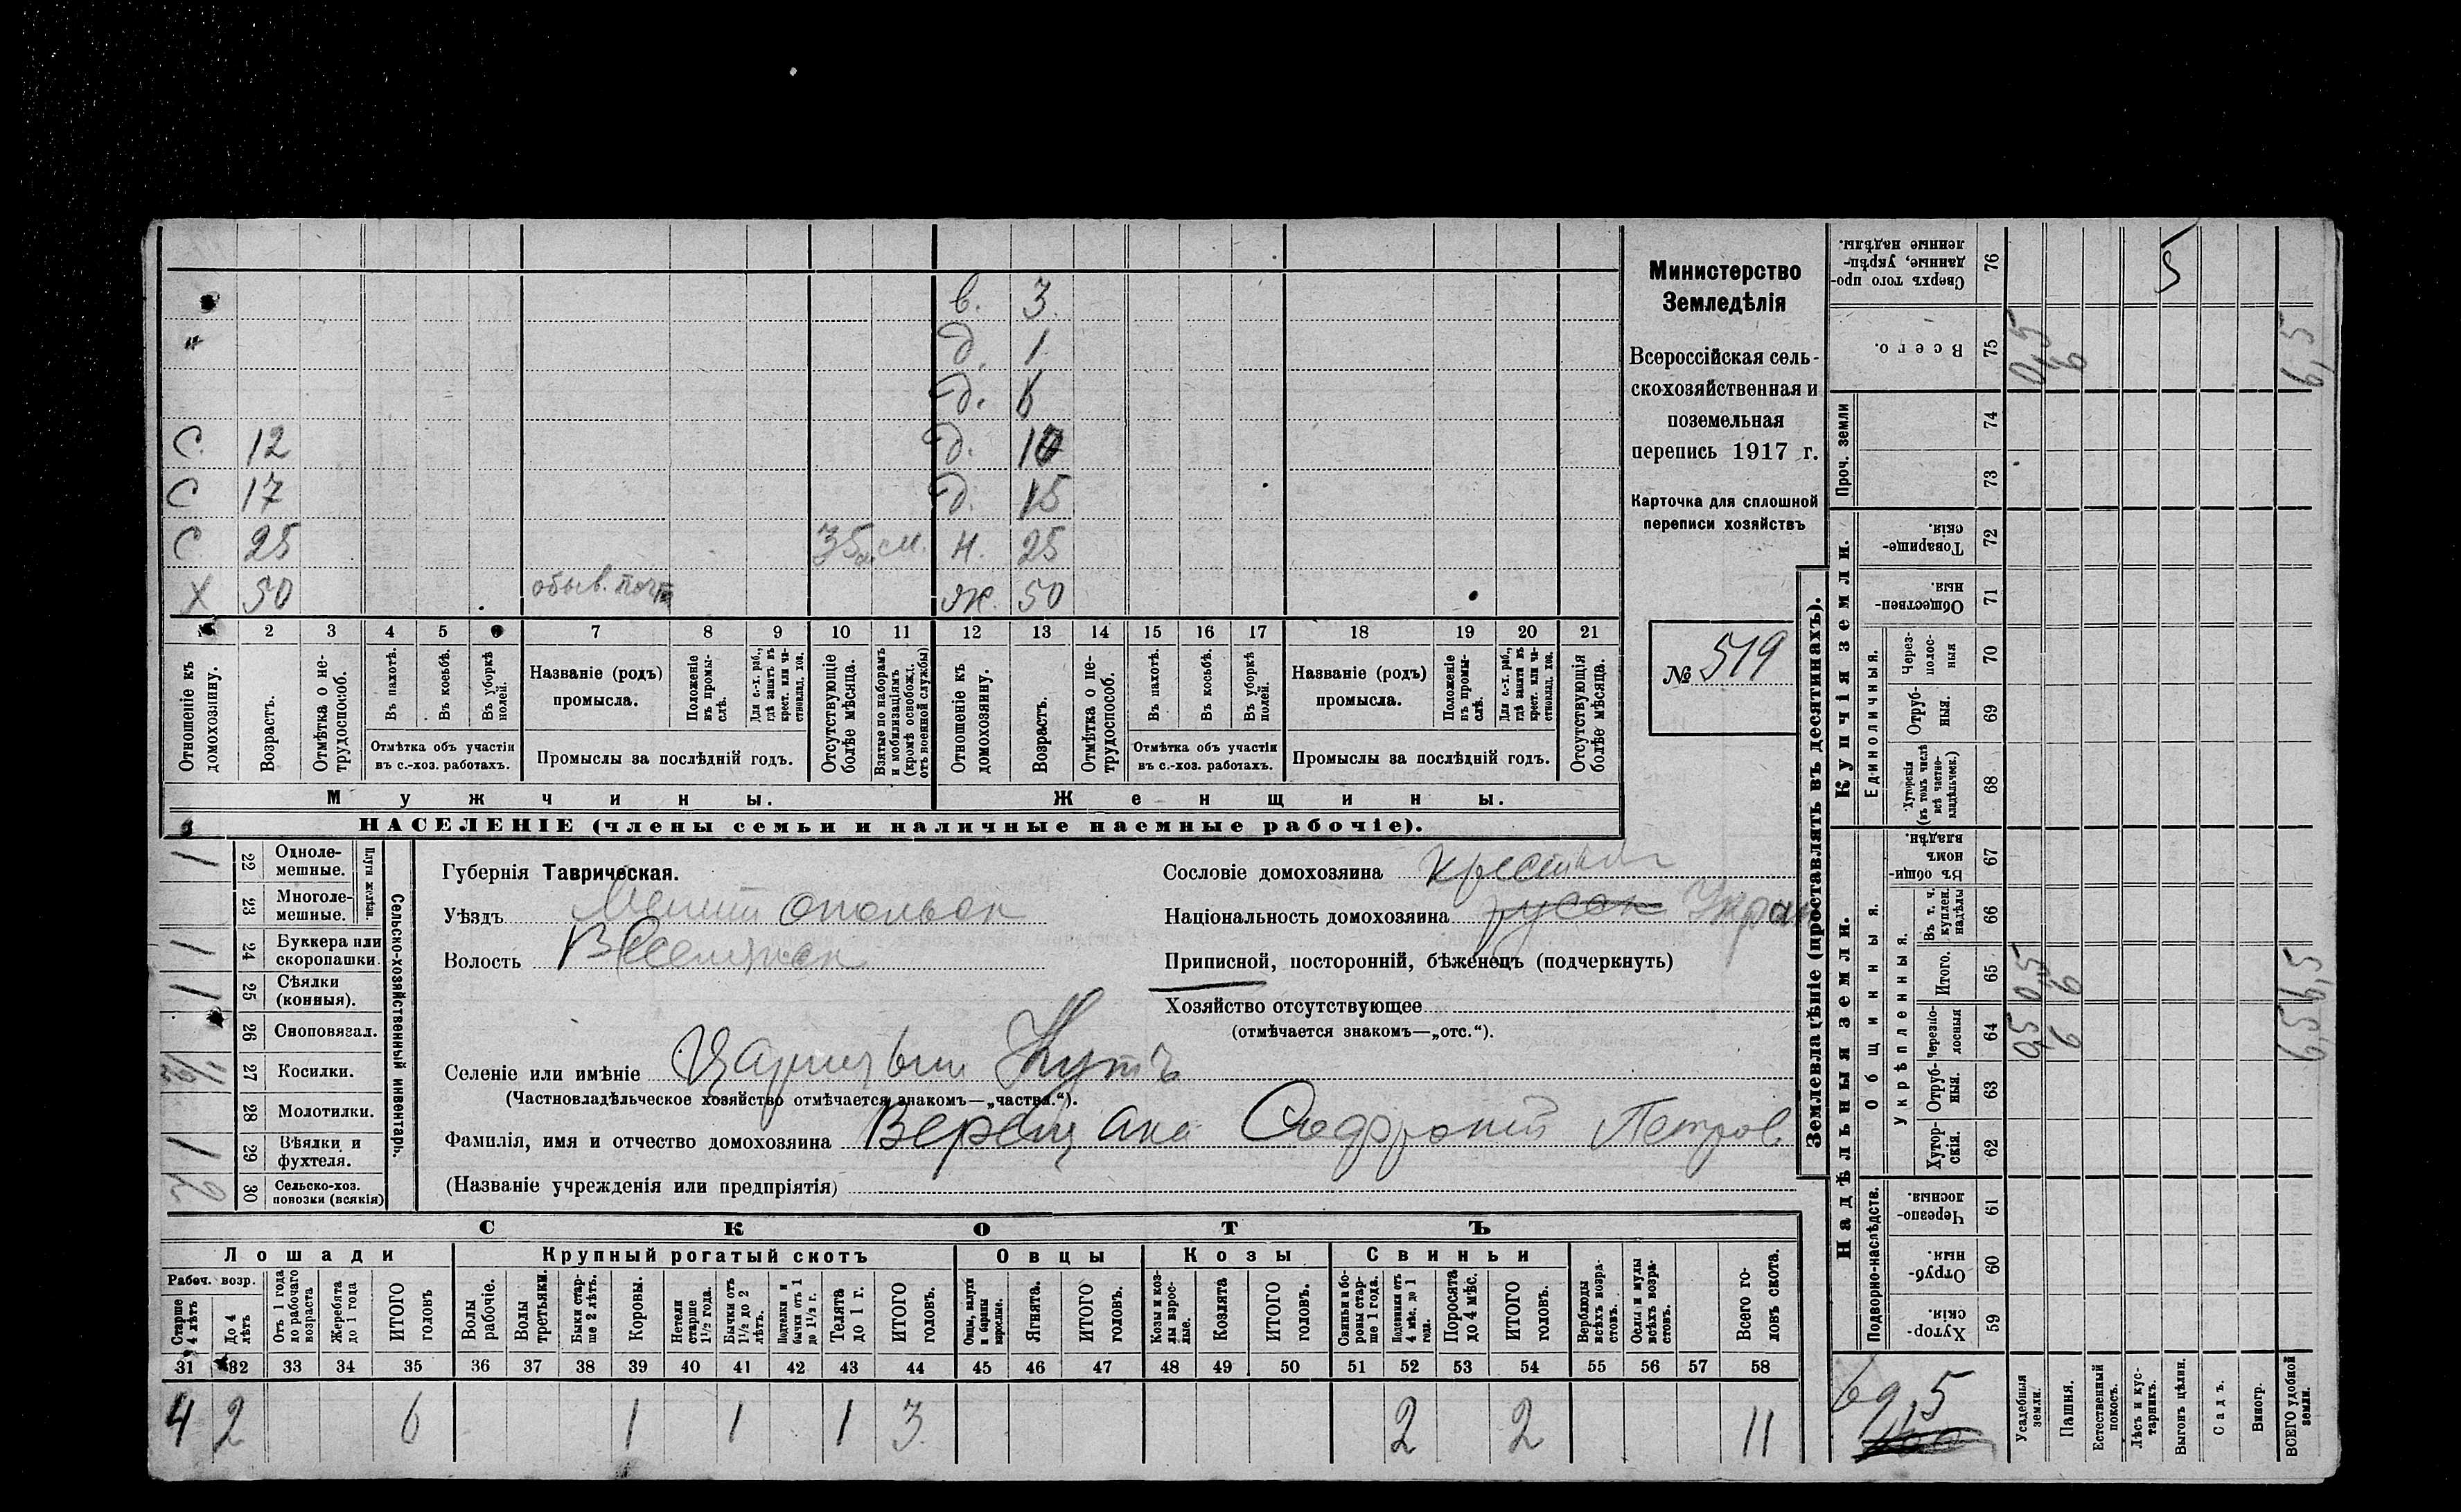 в. 3
" д. 1
д. 6
С 12 д. 10
С 17 д. 15
С 25 см. н. 25
Х 50 обыв. ж. 50
1 2 3 4 5 6 7 8 9 10 11 12 13 14 15 16 17 18 19 20 21
Отношеніе къ домохозяину.
Возрастъ.
Отмѣтка о нетрудоспособ.
Въ пахотѣ.
Въ косьбѣ.
Въ уборкѣ полей.
Отмѣтка объ участіи
въ с.-хоз. работахъ.
Названіе (родъ)
промысла.
Положеніе въ промыслѣ.
Для с.-х. раб., гдѣ занятъ въ крест. или частновлад. хоз.
Промыслы за послѣдній годъ.
Отсутствующіе болѣе мѣсяца.
Взятые по наборамъ и мобилизаціямъ (кромѣ освобожд. отъ военной службы)
Отношеніе къ домохозяину.
Возрастъ.
Отмѣтка о нетрудоспособ.
Въ пахотѣ.
Въ косьбѣ.
Въ уборкѣ полей.
Отмѣтка объ участіи
въ с.-хоз. работахъ.
Названіе (родъ)
промысла.
Положеніе въ промыслѣ.
Для с.-х. раб., гдѣ занята въ крест. или частновлад. хоз.
Промыслы за послѣдній годъ.
Отсутствующія болѣе мѣсяца.
Мужчины. Женщины.
НАСЕЛЕНІЕ (члены семьи и наличные наемные рабочіе).
Министерство
Земледѣлія
Всероссійская сель-
скохозяйственная и
поземельная
перепись 1917 г.
Карточка для сплошной
переписи хозяйствъ
№ 519
Сельско-хозяйственный инвентарь.
Плуги желѣзн.
1 22 Одноле-
мешные.
23 Многоле-
мешные.
1 24 Буккера или
скоропашки.
1 25 Сѣялки
(конныя).
26 Сноповязал.
1/2 27 Косилки.
28 Молотилки.
1 29 Вѣялки и
фухтеля.
2 30 Сельско-хоз.
повозки (всякія)
Губернія Таврическая.
Уѣздъ Мелитопольск
Волость
Сословіе домохозяина
Національность домохозяина русск Укра
Приписной, посторонній, бѣженецъ (подчеркнуть)
Хозяйство отсутствующее
(отмѣчается знакомъ—„отс.“).
Селеніе или имѣніе Царицынъ Кутъ
(Частновладѣльческое хозяйство отмѣчается знакомъ—„частвл.“).
Фамилія, имя и отчество домохозяина Верещака Софроній Петров.
(Названіе учрежденія или предпріятія)
СКОТЪ
Лошади Крупный рогатый скотъ Овцы Козы Свиньи
Рабоч. возр.
Старше 4 лѣтъ
До 4 лѣтъ
Отъ 1 года до рабочаго возраста
Жеребята до 1 года
ИТОГО головъ
Волы рабочіе.
Волы третьяки.
Быки старше 2 лѣтъ.
Коровы.
Нетели старше 1½ года.
Бычки отъ 1½ до 2 лѣтъ.
Подтелки и бычки отъ 1 до 1½ г.
Телята до 1 г.
ИТОГО головъ.
Овцы, валухи и бараны взрослые.
Ягнята.
ИТОГО головъ.
Козы и козлы взрослые.
Козлята
ИТОГО головъ.
Свиньи и боровы старше 1 года.
Подсвинки отъ 4 мѣс. до 1 года.
Поросята до 4 мѣс.
ИТОГО головъ.
Верблюды всѣхъ возрастовъ.
Ослы и мулы всѣхъ возрастовъ.
Всего головъ скота.
31 32 33 34 35 36 37 38 39 40 41 42 43 44 45 46 47 48 49 50 51 52 53 54 55 56 57 58
4 2 6 1 1 1 3 2 2 11
Землевладѣніе (проставлять въ десятинахъ).
Купчія земли.
Надѣльныя земли.
Сверхъ того проданные, укрѣпленные надѣлы. 76 5
Всего. 75 0,5 6 6,5
Проч. земли
74
73
Товарищескія. 72
Общественныя. 71
Единоличныя.
Черезполосныя 70
Отрубныя. 69
Хуторскія (въ томъ числѣ всѣ частновладѣльческ.) 68
Общинныя.
Въ общинномъ владѣн. 67
Укрѣпленныя.
Въ т. ч. куплен. надѣлы 66
Итого. 65 0,5 6 6,5
Черезполосныя 64 0,5 6 6,5
Отрубныя. 63
Хуторскія. 62
Подворно-наслѣдств.
Черезполосныя. 61
Отрубныя. 60
Хуторскія 59
Усадебныя земли.
Пашня.
Естественный покосъ.
Лѣсъ и кустарникъ.
Выгонъ цѣлин.
Садъ.
Виногр.
ВСЕГО удобной земли.